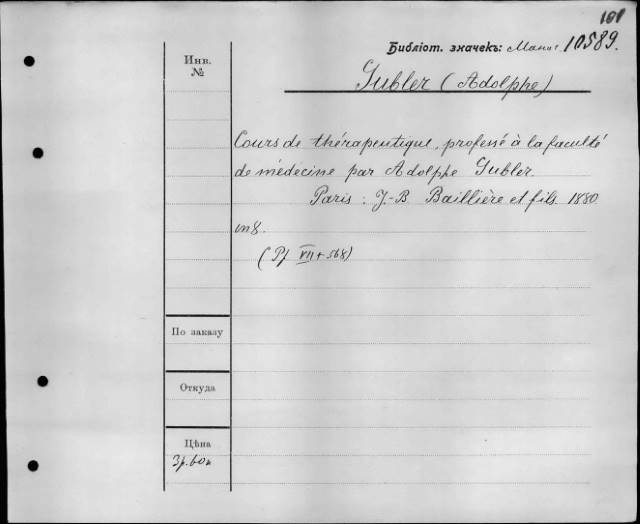 101
Библіот. значекъ: 10589.
Инв. №
Gubler (Adolphe)
Cours de thérapeutique, professé à la faculté
de médecine par Adolphe Gubler.
Paris : J.-B Baillière et fils 1880
in 8.
(Pf VII + 568)
По заказу
Откуда
Цѣна
3р. 60к